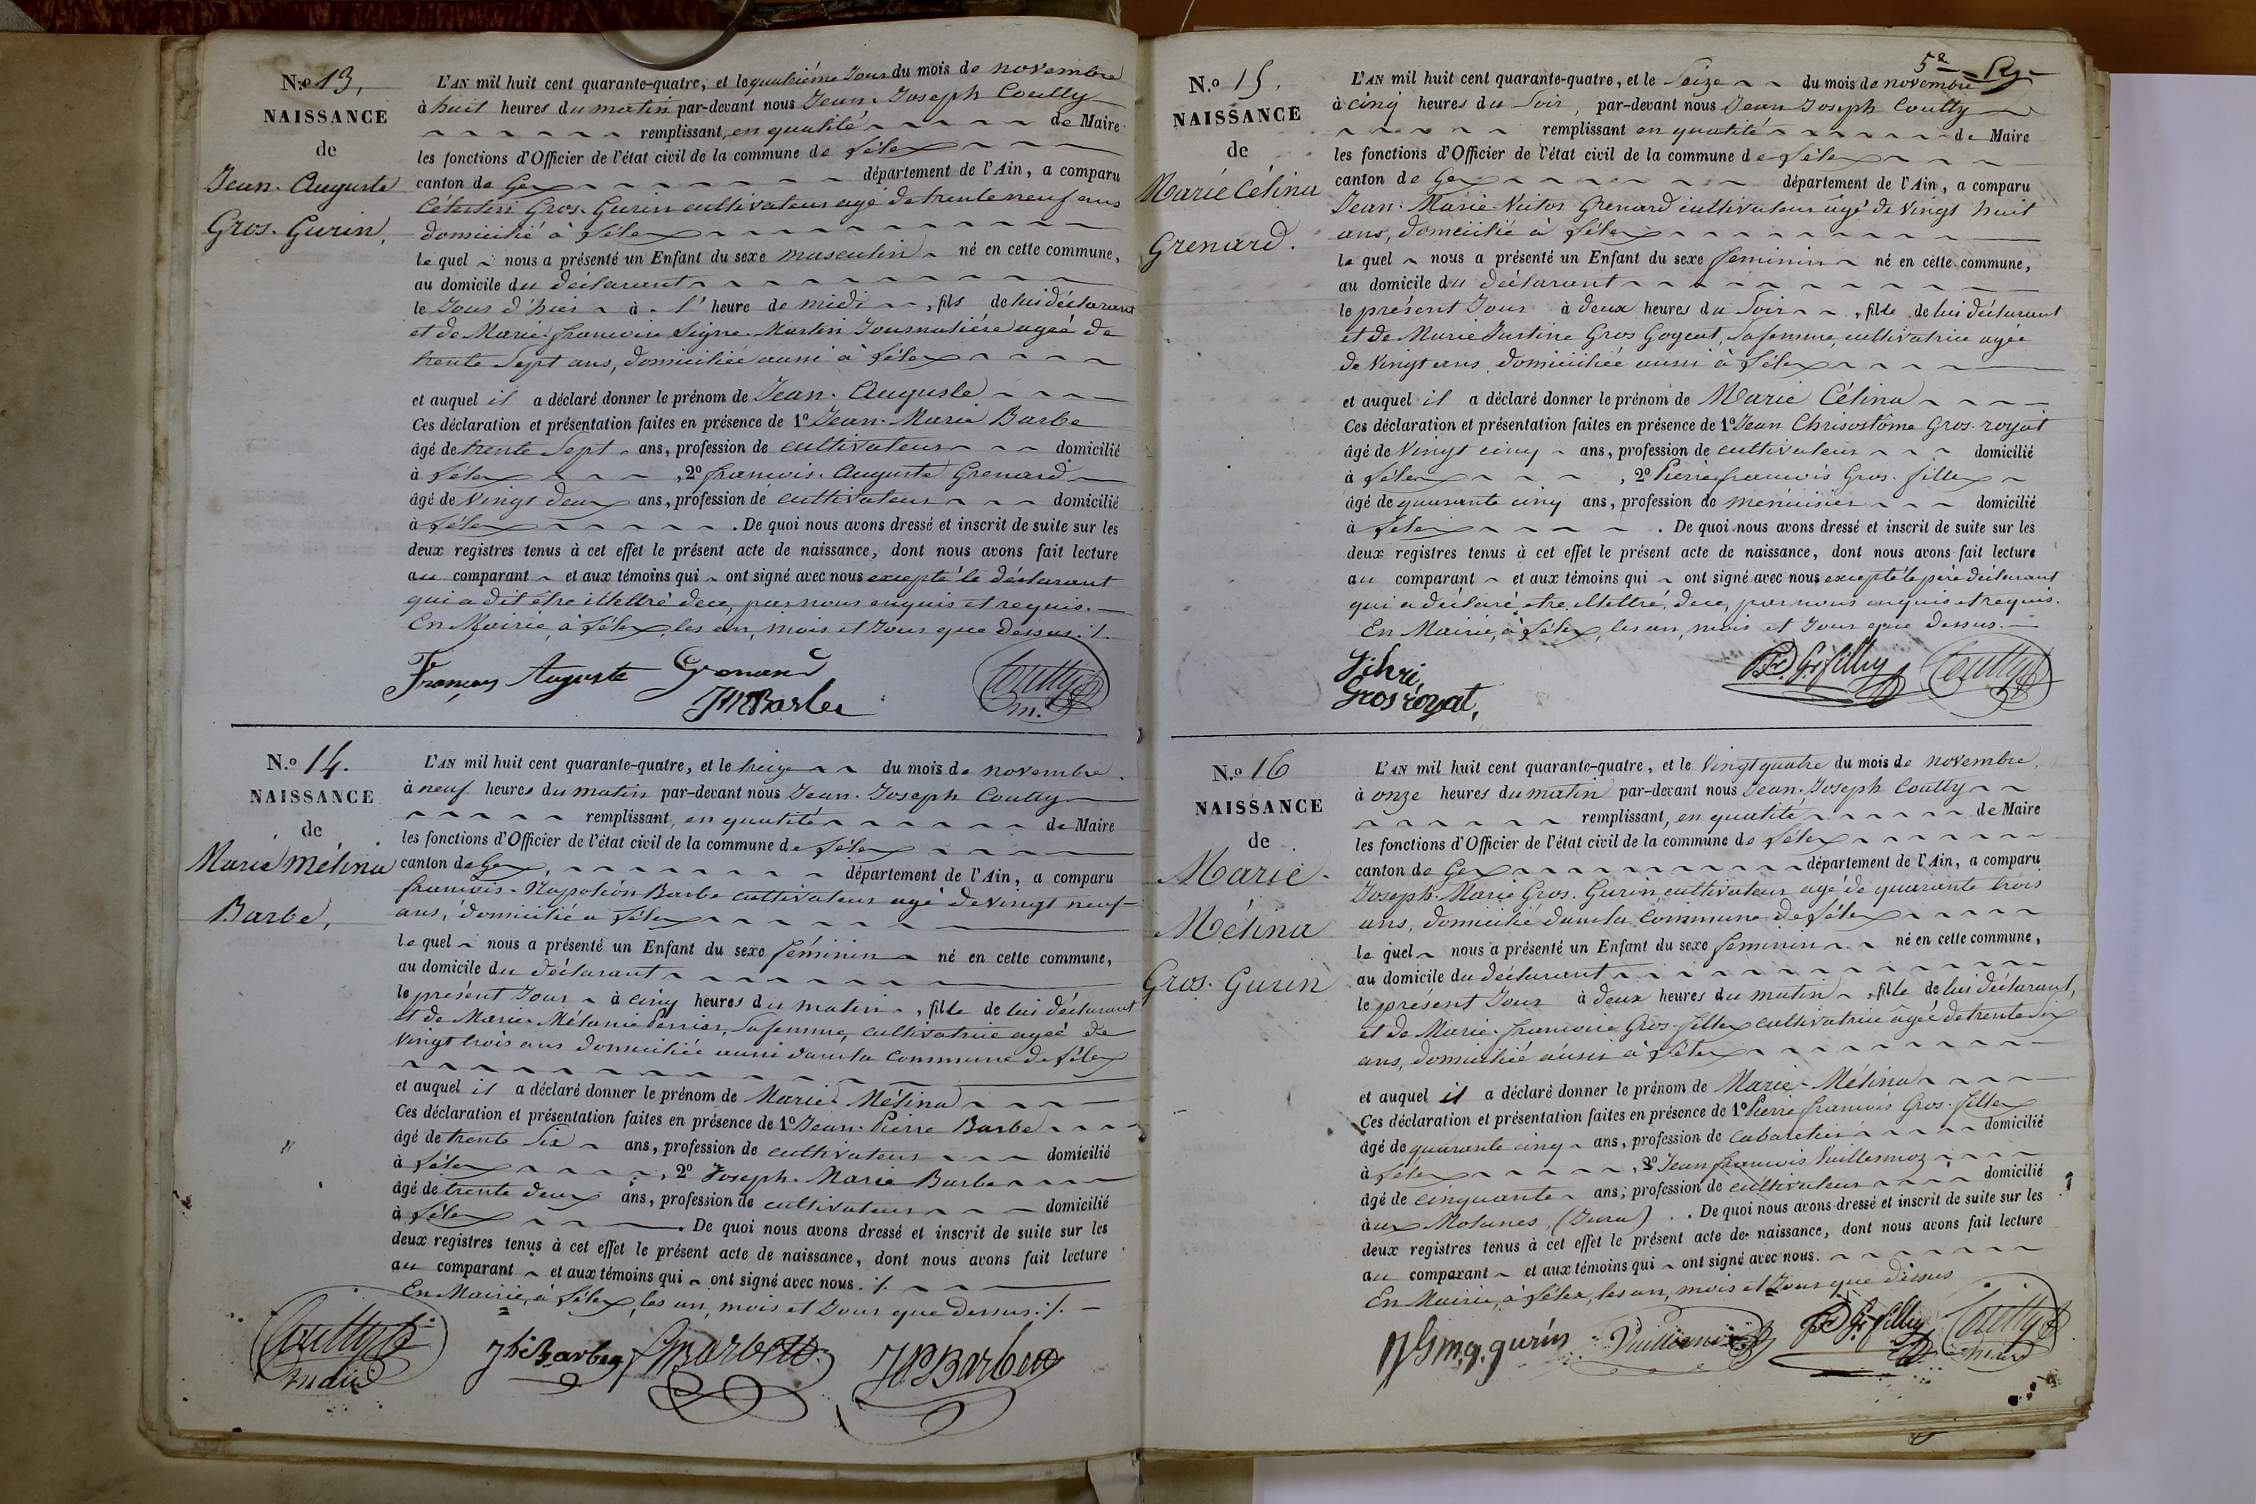 N.º 13,
NAISSANCE
de
Jean. Auguste
Gros. Gurin,
L'AN mil huit cent quarante-quatre, et le quatrième Jour du mois de novembre
à huit heures du matin par-devant nous Jean. Joseph Coutty
remplissant, en qualité de Maire
les fonctions d'Officier de l'état civil de la commune de Lélex
canton de Gex département de l'Ain, a comparu
Célestin Gros. Gurin cultivateur agé de trente neuf ans
domicilié à Lélex
le quel nous a présenté un Enfant du sexe masculin né en cette commune,
au domicile du déclarant
le Jour d'hier à l'heure de midi, fils de lui déclarant
et de Marie. francoise Martin Journalière ageé de
trente Sept ans, domiciliée aussi à Lélex
et auquel il a déclaré donner le prénom de Jean. Auguste
Ces déclaration et présentation faites en présence de 1º Jean. Marie Barbe
âgé de trente Sept ans, profession de cultivateur domicilié
à Lélex, 2º francois. Auguste Grenard
âgé de Vingt deux ans, profession de cultivateur domicilié
à Lélex. De quoi nous avons dressé et inscrit de suite sur les
deux registres tenus à cet effet le présent acte de naissance, dont nous avons fait lecture
au comparant et aux témoins qui ont signé avec nous excepté le déclarant
qui a dit être illettré dece, par nous enquis et requis.
En Mairie, à Lélex, les an, mois et Jour que dessus ./.
François Auguste Grenard
JMBarbe
Coutty
m.
N.º 14.
NAISSANCE
de
Marie Mélina
Barbe,
L'AN mil huit cent quarante-quatre, et le treize du mois de novembre.
à neuf heures du matin par-devant nous Jean. Joseph Coutty
remplissant, en qualité de Maire
les fonctions d'Officier de l'état civil de la commune de Lélex
canton de Gex, département de l'Ain, a comparu
francois. Napoléon Barbe cultivateur agé de vingt neuf
ans, domicilié a Lélex
le quel nous a présenté un Enfant du sexe féminin né en cette commune,
au domicile du déclarant
le présent Jour à cinq heures du matin, fille de lui déclarant
et de Marie. Mélanie Perrier, Sa femme, cultivatrice ageé de
Vingt trois ans domiciliée aussi dans la commune de Lélex
et auquel il a déclaré donner le prénom de Marie. Mélina
Ces déclaration et présentation faites en présence de 1º Jean. Pierre Barbe
âgé de trente Six ans, profession de cultivateur domicilié
à Lélex, 2º Joseph. Marie Barbe
âgé de trente deux ans, profession de cultivateur domicilié
à Lélex. De quoi nous avons dressé et inscrit de suite sur les
deux registres tenus à cet effet le présent acte de naissance, dont nous avons fait lecture
au comparant et aux témoins qui ont signé avec nous ./.
En Mairie, à Lélex, les an, mois et Jour que dessus ./.
Coutty
maire
Barbe
Barbe
JPBarbe
5e
N.º 15.
NAISSANCE
de
Marie Célina
Grenard.
L'AN mil huit cent quarante-quatre, et le Seize du mois de novembre
à cinq heures du Soir, par-devant nous Jean Joseph Coutty
remplissant en qualité de Maire
les fonctions d'Officier de l'état civil de la commune de Lélex
canton de Gex département de l'Ain, a comparu
Jean. Marie Victor Grenard cultivateur agé de Vingt huit
ans, domicilié à Lélex
le quel nous a présenté un Enfant du sexe feminin né en cette commune,
au domicile du déclarant
le présent Jour à deux heures du Soir, fille de lui déclarant
et de Marie Justine Gros Gogeat, Sa femme, cultivatrice agée
de Vingt ans domiciliée aussi à Lélex
et auquel il a déclaré donner le prénom de Marie Célina
Ces déclaration et présentation faites en présence de 1º Jean Chrisostôme Gros. royat
âgé de Vingt cinq ans, profession de cultivateur domicilié
à Lélex, 2º Pierre francois Gros. fillex
âgé de quarante cinq ans, profession de menuisier domicilié
à Lélex. De quoi nous avons dressé et inscrit de suite sur les
deux registres tenus à cet effet le présent acte de naissance, dont nous avons fait lecture
au comparant et aux témoins qui ont signé avec nous excepté le père déclarant
qui a déclaré etre illettré, dece, par nous enquis et requis.
En Mairie, à Lélex, les an, mois et Jour que dessus.
Jchri,
Grosroyat,
Gr fillex
Coutty
N.º 16
NAISSANCE
de
Marie.
Mélina
Gros. Gurin
L'AN mil huit cent quarante-quatre, et le Vingt quatre du mois de novembre,
à onze heures du matin par-devant nous Jean. Joseph Coutty
remplissant, en qualité de Maire
les fonctions d'Officier de l'état civil de la commune de Lélex
canton de Gex département de l'Ain, a comparu
Joseph. Marie Gros. Gurin cultivateur agé de quarante trois
ans, domicilié dans la Commune de Lélex
le quel nous a présenté un Enfant du sexe feminin né en cette commune,
au domicile du déclarant
le présent Jour à deux heures du matin, fille de lui déclarant,
et de Marie. francoise Gros. fillex cultivatrice agée de trente Six
ans, domiciliée aussi à Lélex
et auquel il a déclaré donner le prénom de Marie. Mélina
Ces déclaration et présentation faites en présence de 1º Pierre francois Gros. fillex
âgé de quarante cinq ans, profession de cabaretier domicilié
à Lélex, 2º Jean francois Vuillermoz
âgé de cinquante ans, profession de cultivateur domicilié
aux Molunes, (Jura). De quoi nous avons dressé et inscrit de suite sur les
deux registres tenus à cet effet le présent acte de naissance, dont nous avons fait lecture
au comparant et aux témoins qui ont signé avec nous.
En Mairie, à Lélex, les an, mois et Jour que dessus
gurin
Vuillermoz
Gr fillex
Coutty
maire